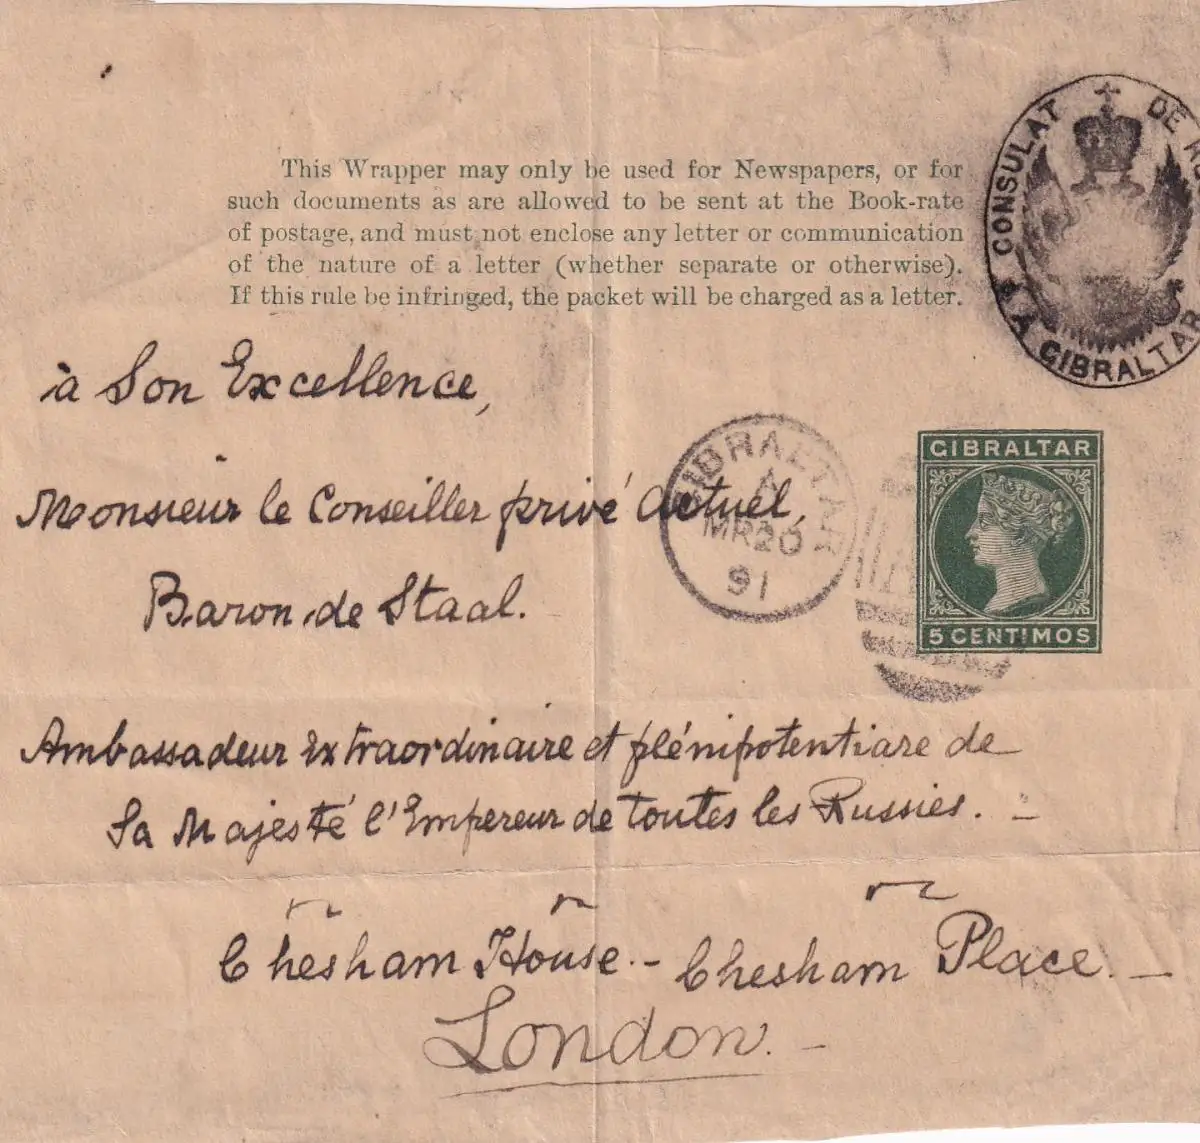 This Wrapper may only be used for Newspapers, or for
such documents as are allowed to be sent at the Book-rate
of postage, and must not enclose any letter or communication
of the nature of a letter (whether separate or otherwise).
If this rule be infringed, the packet will be charged as a letter.
CONSULAT DE
À GIBRALTAR
à Son Excellence,
GIBRALTAR
A
MR 20
91
GIBRALTAR
5 CENTIMOS
Monsieur le Conseiller privé Actuel,
Baron de Staal.
Ambassadeur Extraordinaire et plénipotentiare de
Sa Majesté l'Empereur de toutes les Russies. -
Chesham House. - Chesham Place. -
London. -